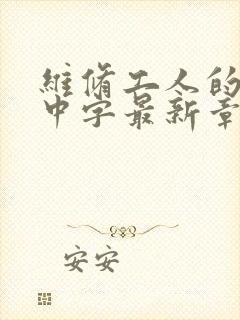 維脩工人的
中字最新章
安安